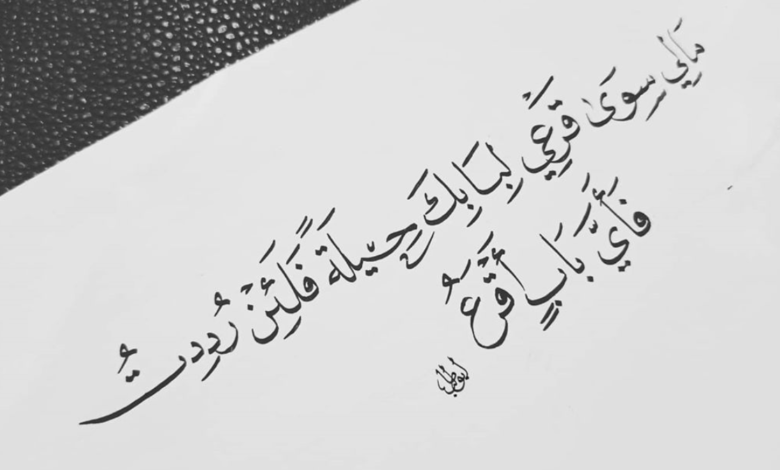 مَالِي سِوَى قَرْعِي لِبَابِكَ حِيلَةً فَلَئِنْ رُدِدتُ
فَأَيَّ بَابٍ أَقْرَعُ